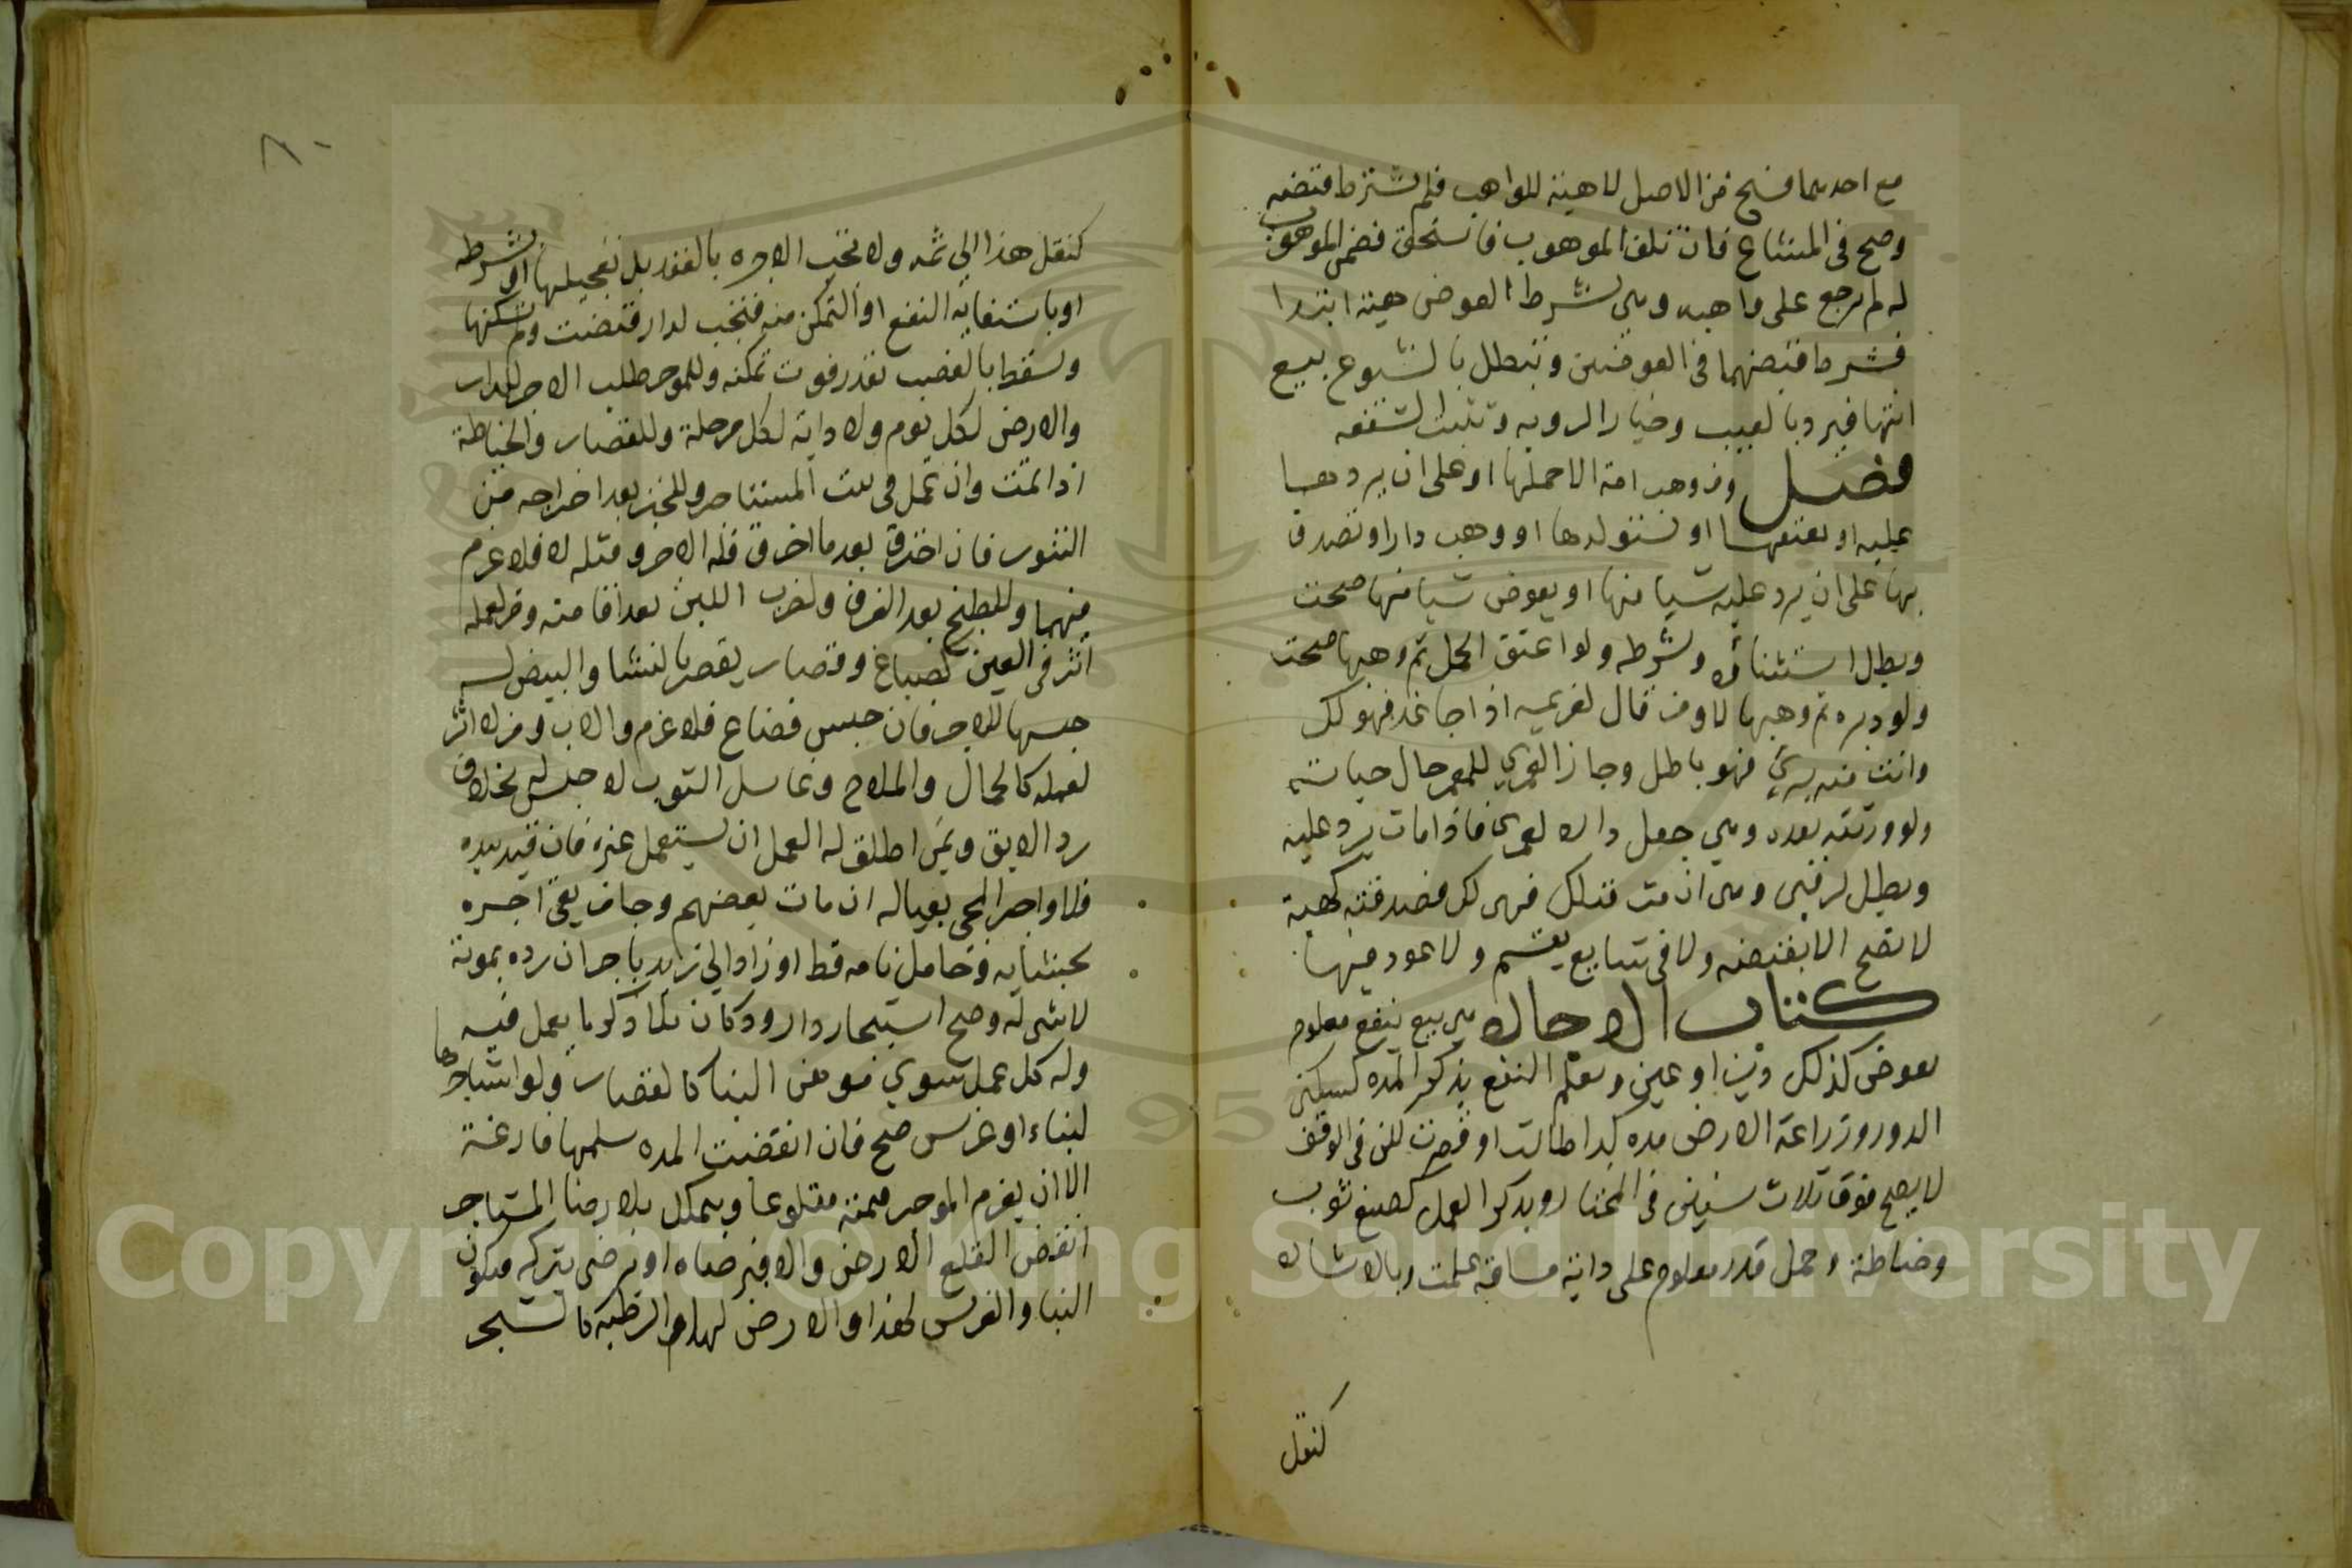 مع احدهما فسخ من الاصل لا هبة للواهب فلم يشترط قبضه
وصح في المشاع فان تلف الموهوب فاستحق فضمن الموهوب
له لم يرجع على واهبه وهي بشرط العوض هبة ابتدا
فشرط قبضهما في العوضين وتبطل بالشيوع بيع
انتها فيرد بالعيب وخيار الرويه وتثبت الشفعه
فصل ومن وهب امة الا حملها او على ان يردها
عليه او يعتقها او يستولدها او وهب دارا او تصدق
بها على ان يرد عليه شيا منها او يعوض شيا منها صحت
وبطل استثناؤه وشرطه ولو اعتق الحمل ثم وهبها صحت
ولو دبره ثم وهبها لا ومن قال لغريمه اذا جا غد فهو لك
وانت منه بريئ فهو باطل وجاز العمري للمعمر حال حياته
ولورثته بعده وهي جعل داره له عمري فاذا مات يرد عليه
وبطل لرقبى وهي ان مت قبلك فهي لك فصدقته كهبة
لا تصح الا بقبضه ولا في شايع يقسم ولا عود فيها
كتاب الاجاره هي بيع نفع معلوم
بعوض كذلك دين او عين ويعلم النفع بذكر المده كسكنى
الدور وزراعة الارض مده كذا طالت او قصرت لكن في الوقف
لا يصح فوق ثلاث سنين في المختار وبذكر العمل كصبغ ثوب
وخياطة وحمل قدر معلوم على دابة مسافة علمت وبالاشاره
كنقل
٨٠
كنقل هذا الى ثمه ولا تجب الاجره بالعقد بل بتعجيلها او بشرطه
او باستيفايه النفع او التمكن منه فتجب لدار قبضت ولم يسكنها
وتسقط بالغصب بقدر فوت تمكنه وللموجر طلب الاجر للدار
والارض لكل يوم ولا دابة لكل مرحلة وللقصار والخياطة
اذا تمت وان عمل في بيت المستاجر وللخبز بعد اخراجه من
التنور فان احترق بعد ما اخرق فله الاجر وقبله لا فلا غرم
فيهما وللطبخ بعد الغرف ولضرب اللبن بعد اقامته ومن لعمله
اثر في العين كصباغ وقصار يقصر بالنشا والبيض له
حبسها للاجر فان حبس فضاع فلا غرم والاب ومن لا اثر
لعمله كالحمال والملاح وغاسل الثوب لا حبس له بخلاف
رد الابق ومن اطلق له العمل ان يستعمل غيره فان قيد بيده
فلا واجر المجي بعياله ان مات بعضهم وجا من بقي اجره
بحسابه وحامل نامه قط او زاد الى زيد باجر ان رده بموته
لا شي له وصح استيجار دار ودكان بلا ذكر ما يعمل فيه
وله كل عمل سوي موهن البنا كالقصار ولو استاجرها
لبناء او غرس صح فان انقضت المده سلمها فارغة
الا ان يغرم الموجر قيمته مقلوعا ويتملك بلا رضا المستاجر
ان نقض القلع الارض والا فبرضاه او يرضى بتركه فيكون
البنا والغرس لهذا والارض لهذا والرطبة كالشجر